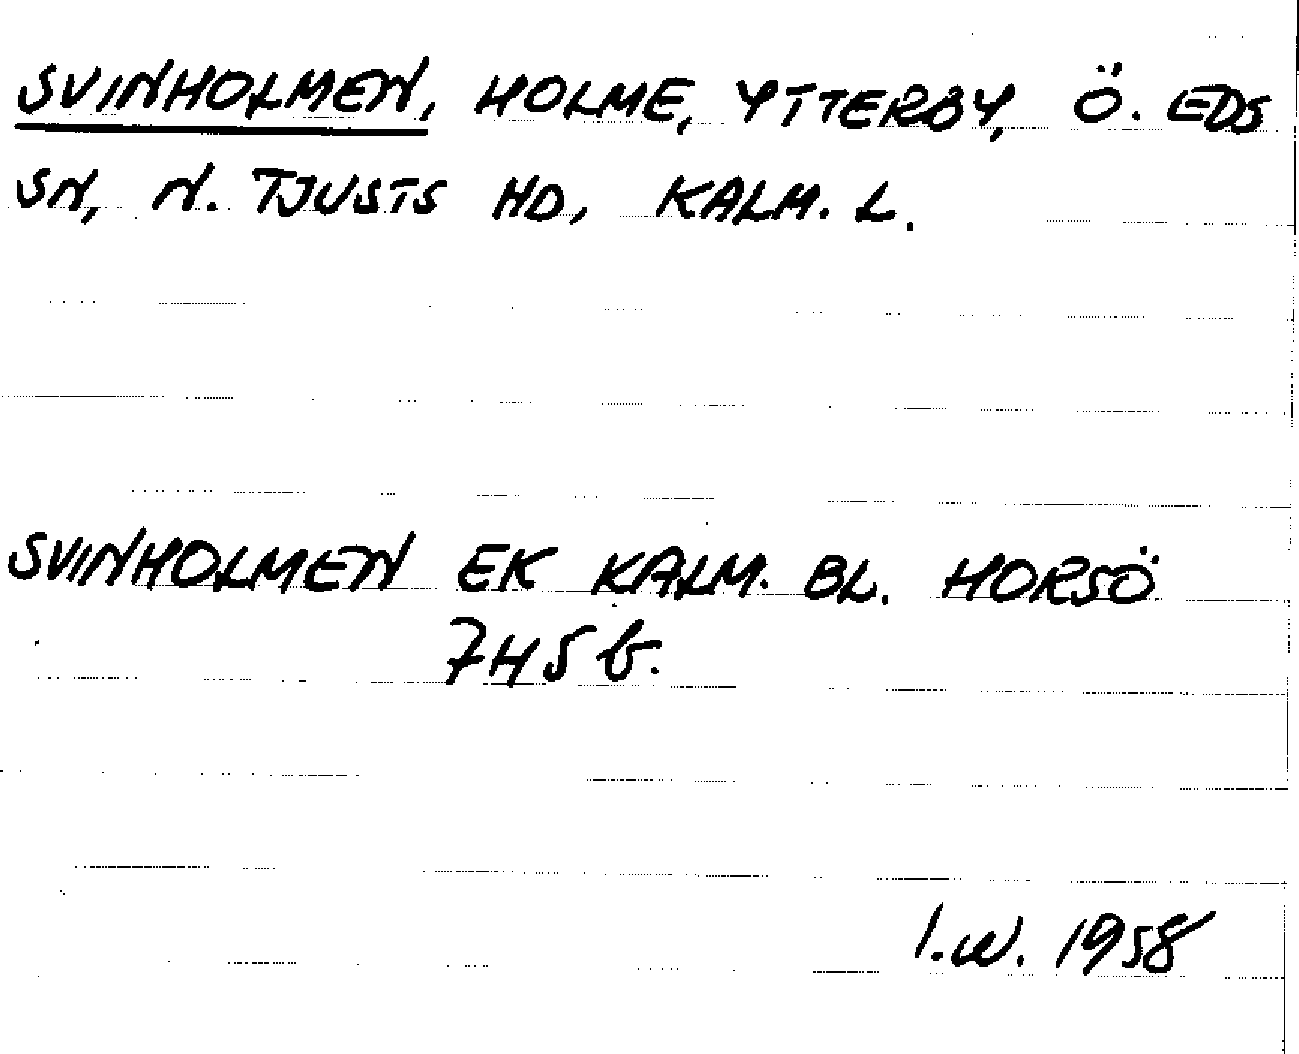 SVINHOLMEN, HOLME, YTTERBY, Ö. EDS
SN, N. TJUSTS HD, KALM. L.
SVINHOLMEN EK KALM. BL. HORSÖ
7H5b.
I.W. 1958